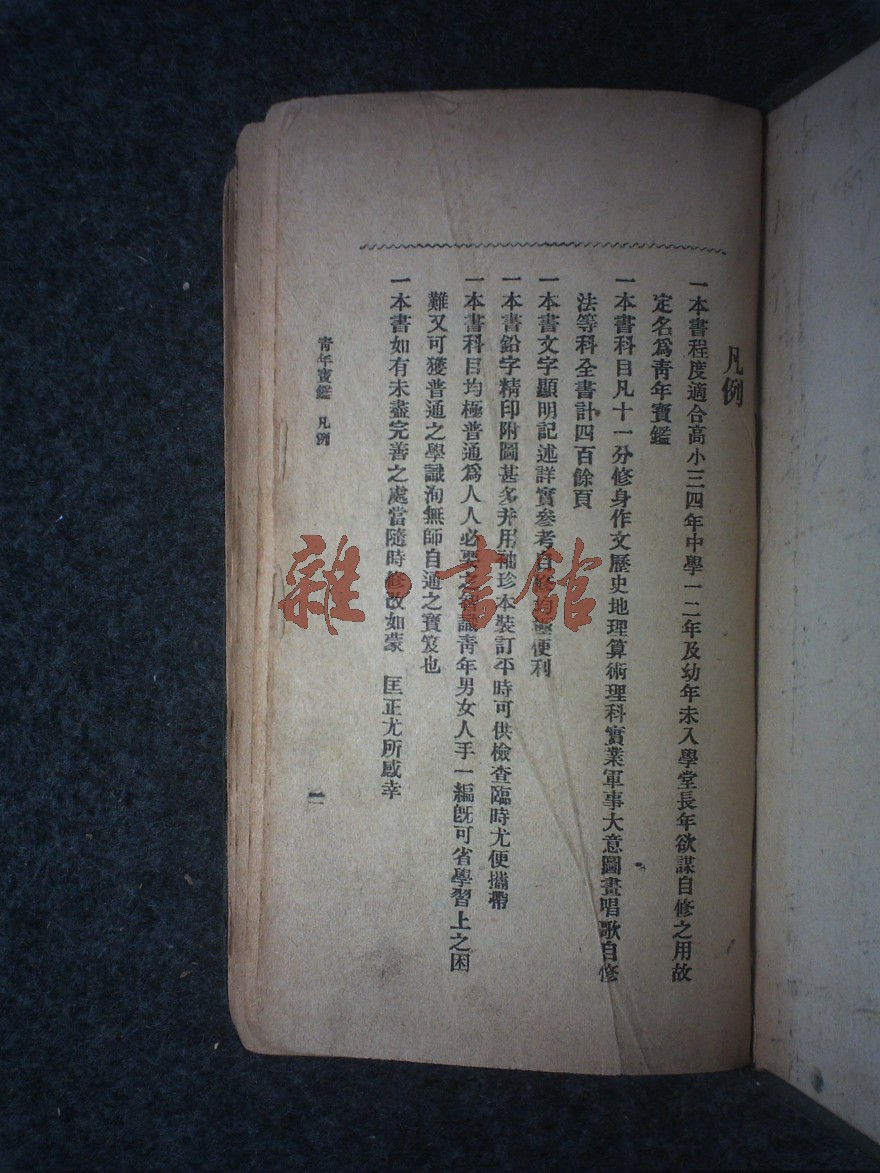 凡例
一本書程度適合高小三四年中學一二年及幼年未入學堂長年欲謀自修之用故
定名爲靑年寶鑑
一本書科目凡十一分修身作文歷史地理算術理科實業軍事大意圖畫唱歌自修
法等科全書計四百餘頁
一本書文字顯明記述詳實參考自修均極便利
一本書鉛字精印附圖甚多并用袖珍本裝訂平時可供檢查臨時尤便攜帶
一本書科目均極普通爲人人必要之智識靑年男女人手一編旣可省學習上之困
難又可獲普通之學識洵無師自通之寶笈也
一本書如有未盡完善之處當隨時修改如蒙 匡正尤所感幸
靑年寶鑑 凡例
一
雜·書館